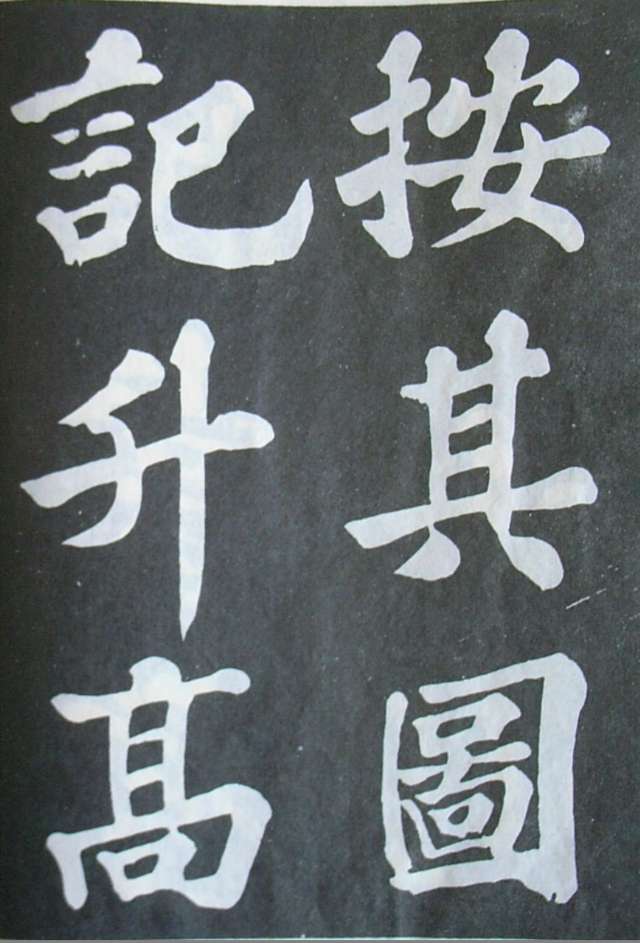 按其圖
記升髙